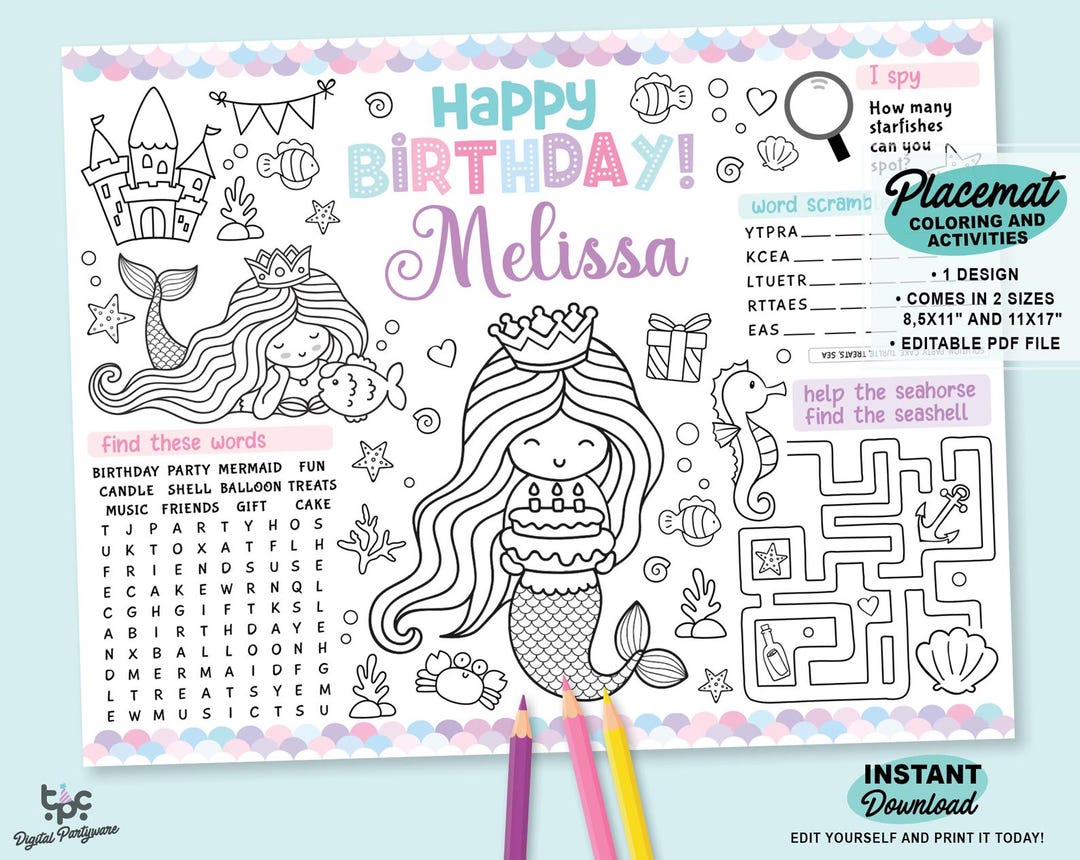 Happy
BIRTHDAY!
Melissa
I spy
How many
starfishes
can you
spot?
word scrambl
YTPRA
KCEA
LTUETR
RTTAES
EAS
SOLUTION: PARTY, CAKE, TURTLE, TREATS, SEA
Placemat
COLORING AND
ACTIVITIES
• 1 DESIGN
• COMES IN 2 SIZES
8,5X11" AND 11X17"
• EDITABLE PDF FILE
help the seahorse
find the seashell
find these words
BIRTHDAY PARTY MERMAID FUN
CANDLE SHELL BALLOON TREATS
MUSIC FRIENDS GIFT CAKE
T J P A R T Y H O S
U K T O X A T F L H
F R I E N D S U S E
E C A K E W R N Q L
C G H G I F T K S L
A B I R T H D A Y E
N X B A L L O O N H
D M E R M A I D F G
L T R E A T S Y E M
E W M U S I C T S U
tpc
Digital Partyware
INSTANT
Download
EDIT YOURSELF AND PRINT IT TODAY!